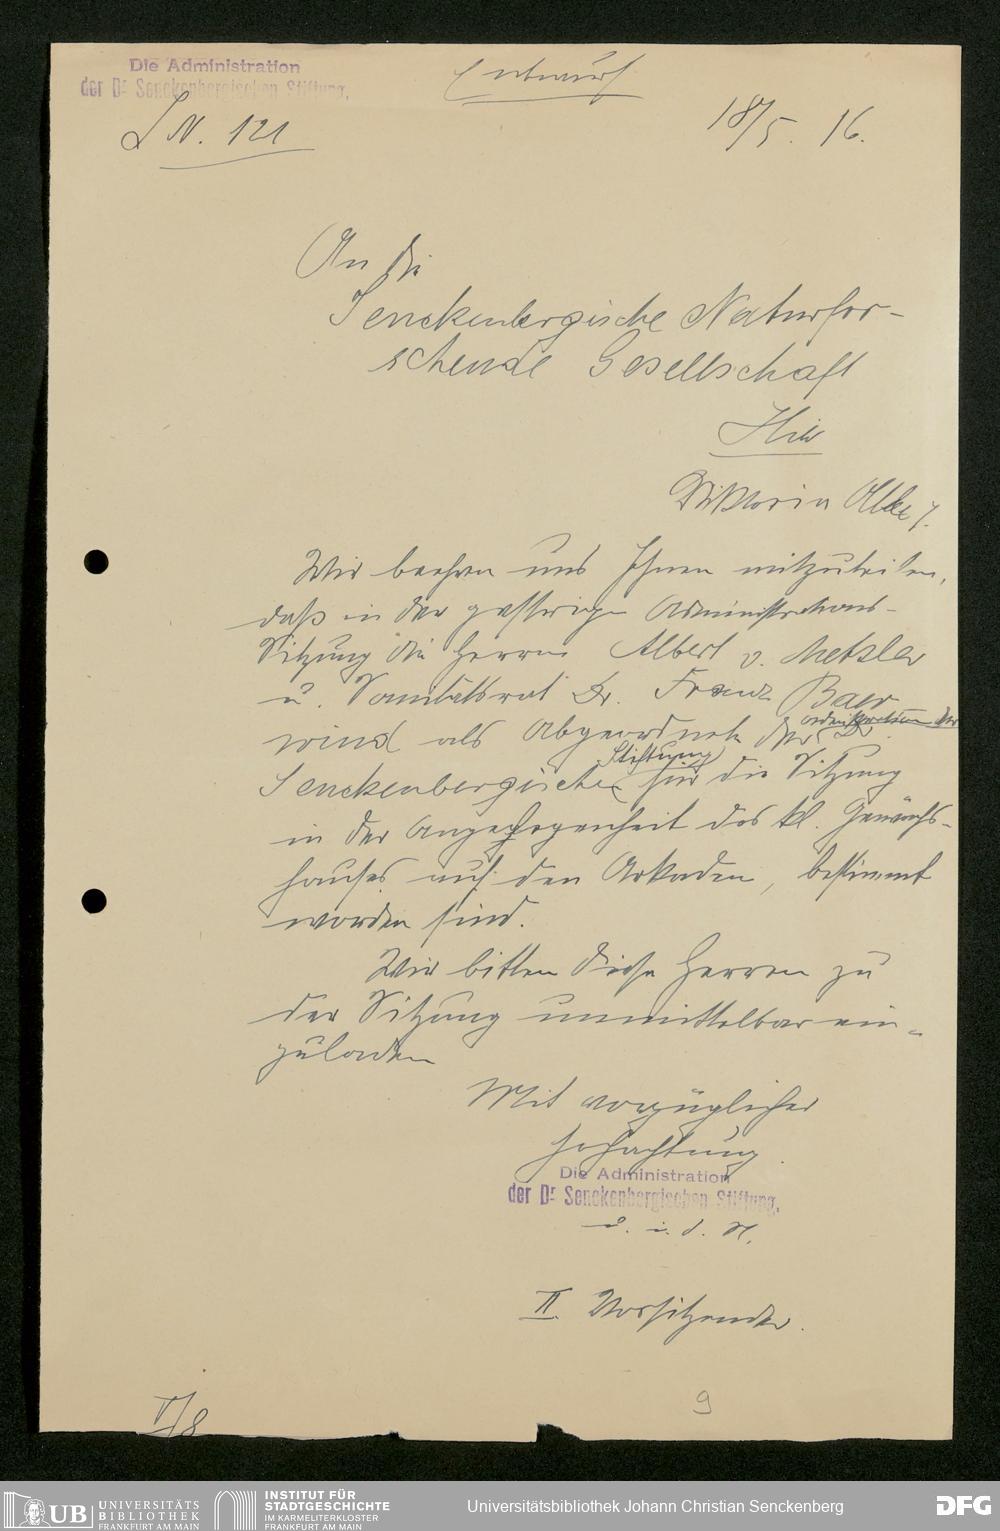 Die Administration
der Dr. Senckenbergischen Stiftung.
Entwurf
L N. 121
18/5. 16.
An die
Senckenbergische Naturfor-
schende Gesellschaft
Hier
Viktoria Allee 7.
Wir beehren uns Ihnen mitzuteilen,
daß in der gestrigen Administrations-
Sitzung die Herren Albert v. Metzler
u. Sanitätsrat Dr. Franz Baer
als Abgeordnete der Dr.
Administration der
Stiftung
Senckenbergische für die Sitzung
in der Angelegenheit des kl. Gewächs-
hauses auf den Arkaden, bestimmt
worden sind.
Wir bitten diese Herren zu
der Sitzung unmittelbar ein-
zuladen
Mit vorzüglicher
Hochachtung
Die Administration
der Dr. Senckenbergischen Stiftung.
u. i. d. N.
II. Vorsitzender.
V/8
9
UB UNIVERSITÄTS
BIBLIOTHEK
FRANKFURT AM MAIN
INSTITUT FÜR
STADTGESCHICHTE
IM KARMELITERKLOSTER
FRANKFURT AM MAIN
Universitätsbibliothek Johann Christian Senckenberg
DFG